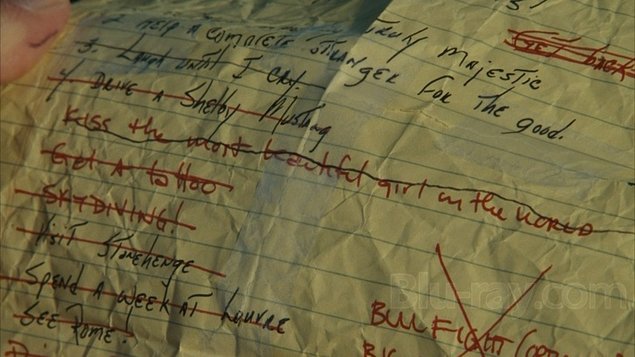 TRULY MAJESTIC
Get back
2. HELP A COMPLETE STRANGER FOR THE good.
3. Laugh until I cry.
4/ DRIVE A Shelby Mustang
Kiss the most beautiful girl in the WORLD
Get A tattoo
SKYDIVING!
Visit Stonehenge
SPEND A WEEK AT Louvre
See Rome!
BULL FIGHT
Blu-ray.com